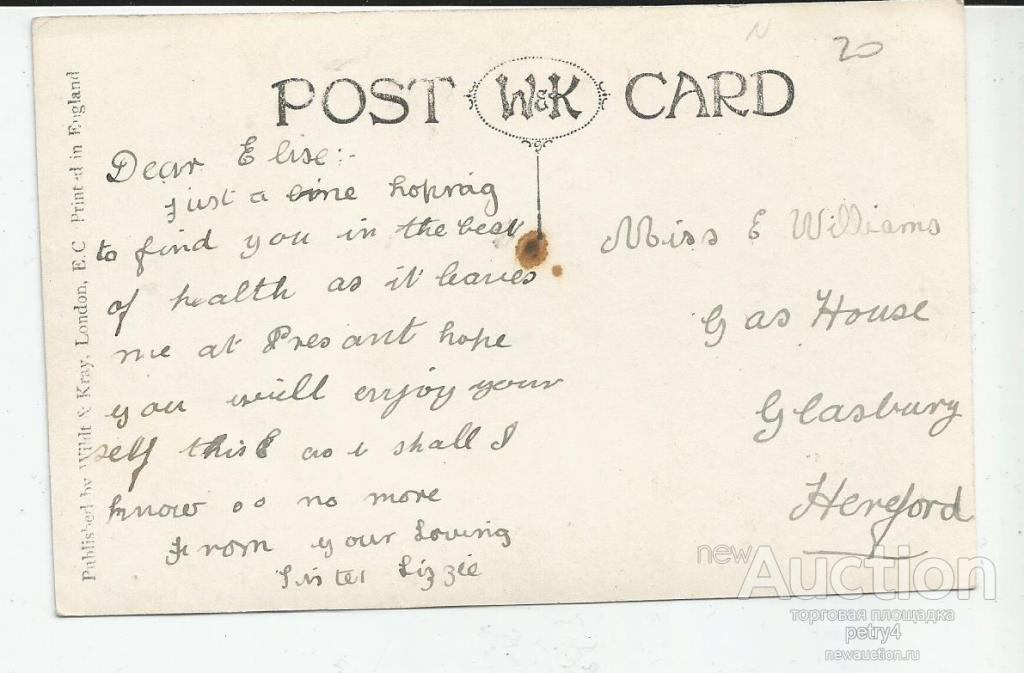 20
POST W&K CARD
Published by Wildt & Kray, London, E.C Printed in England
Dear Elise:-
just a line hoping
to find you in the best
of health as it leaves
me at Presant hope
you will enjoy your
self this as i shall I
know so no more
From your Loving
Sister Lizzie
Miss E Williams
Gas House
Glasbury
Hereford
newAuction
торговая площадка
petry4
newauction.ru